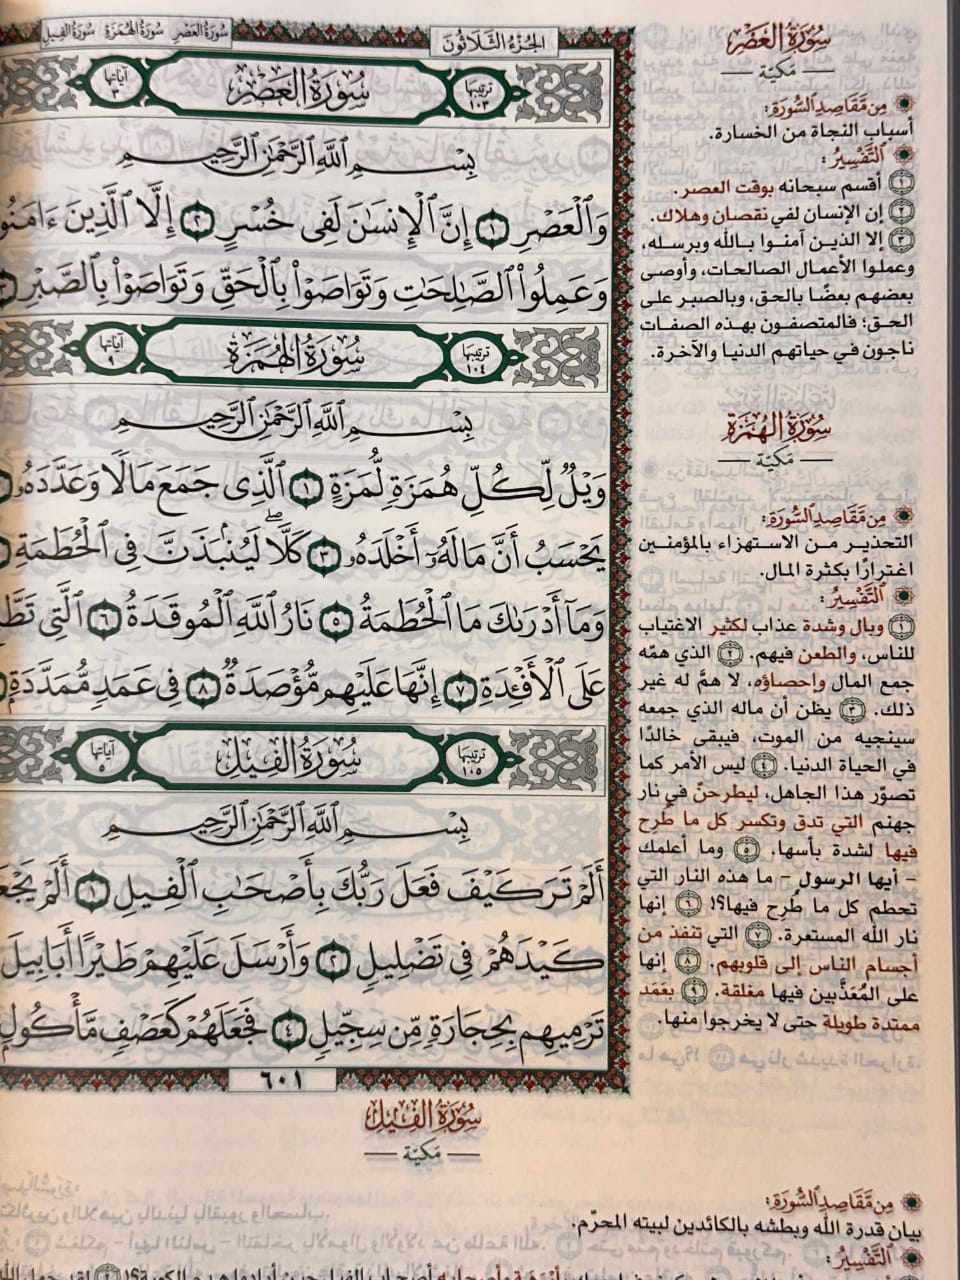 الجزء الثلاثون
سورة العصر سورة الهمزة سورة الفيل
ترتيبها ١٠٣
سُورَةُ الْعَصْرِ
آياتها ٣
بِسْمِ اللَّهِ الرَّحْمَٰنِ الرَّحِيمِ
وَالْعَصْرِ ١ إِنَّ الْإِنسَٰنَ لَفِى خُسْرٍ ٢ إِلَّا الَّذِينَ ءَامَنُوا
وَعَمِلُوا۟ الصَّٰلِحَٰتِ وَتَوَاصَوْا۟ بِالْحَقِّ وَتَوَاصَوْا۟ بِالصَّبْرِ ٣
ترتيبها ١٠٤
سُورَةُ الْهُمَزَةِ
آياتها ٩
بِسْمِ اللَّهِ الرَّحْمَٰنِ الرَّحِيمِ
وَيْلٌ لِّكُلِّ هُمَزَةٍ لُّمَزَةٍ ١ الَّذِى جَمَعَ مَالًا وَعَدَّدَهُۥ
يَحْسَبُ أَنَّ مَالَهُۥٓ أَخْلَدَهُۥ ٣ كَلَّا ۖ لَيُنۢبَذَنَّ فِى الْحُطَمَةِ
وَمَآ أَدْرَىٰكَ مَا الْحُطَمَةُ ٥ نَارُ اللَّهِ الْمُوقَدَةُ ٦ الَّتِى
عَلَى الْأَفْـِٔدَةِ ٧ إِنَّهَا عَلَيْهِم مُّؤْصَدَةٌ ٨ فِى عَمَدٍ مُّمَدَّدَةٍ
ترتيبها ١٠٥
سُورَةُ الْفِيلِ
آياتها ٥
بِسْمِ اللَّهِ الرَّحْمَٰنِ الرَّحِيمِ
أَلَمْ تَرَ كَيْفَ فَعَلَ رَبُّكَ بِأَصْحَٰبِ الْفِيلِ ١ أَلَمْ
كَيْدَهُمْ فِى تَضْلِيلٍ ٢ وَأَرْسَلَ عَلَيْهِمْ طَيْرًا أَبَابِيلَ
تَرْمِيهِم بِحِجَارَةٍ مِّن سِجِّيلٍ ٤ فَجَعَلَهُمْ كَعَصْفٍ مَّأْكُولٍ
٦٠١
سُورَةُ الْعَصْرِ
مَكيّة
مِن مَّقَاصِدِ السُّورَةِ:
أسباب النجاة من الخسارة.
التَّفْسِيرُ:
١ أقسم سبحانه بوقت العصر.
٢ إن الإنسان لفي نقصان وهلاك.
٣ إلا الذين آمنوا بالله وبرسله،
وعملوا الأعمال الصالحات، وأوصى
بعضهم بعضًا بالحق، وبالصبر على
الحق؛ فالمتصفون بهذه الصفات
ناجون في حياتهم الدنيا والآخرة.
سُورَةُ الْهُمَزَةِ
مَكيّة
مِن مَّقَاصِدِ السُّورَةِ:
التحذير من الاستهزاء بالمؤمنين
اغترارًا بكثرة المال.
التَّفْسِيرُ:
١ وبال وشدة عذاب لكثير الاغتياب
للناس، والطعن فيهم. ٢ الذي همّه
جمع المال وإحصاؤه، لا همَّ له غير
ذلك. ٣ يظن أن ماله الذي جمعه
سينجيه من الموت، فيبقى خالدًا
في الحياة الدنيا. ٤ ليس الأمر كما
تصوّر هذا الجاهل، ليطرحنّ في نار
جهنم التي تدق وتكسر كل ما طُرِح
فيها لشدة بأسها. ٥ وما أعلمك
– أيها الرسول – ما هذه النار التي
تحطم كل ما طُرِح فيها؟! ٦ إنها
نار الله المستعرة. ٧ التي تنفذ من
أجسام الناس إلى قلوبهم. ٨ إنها
على المُعَذَّبين فيها مغلقة. ٩ بعَمَد
ممتدة طويلة حتى لا يخرجوا منها.
سُورَةُ الْفِيلِ
مَكيّة
مِن مَّقَاصِدِ السُّورَةِ:
بيان قدرة الله وبطشه بالكائدين لبيته المحرّم.
التَّفْسِيرُ: